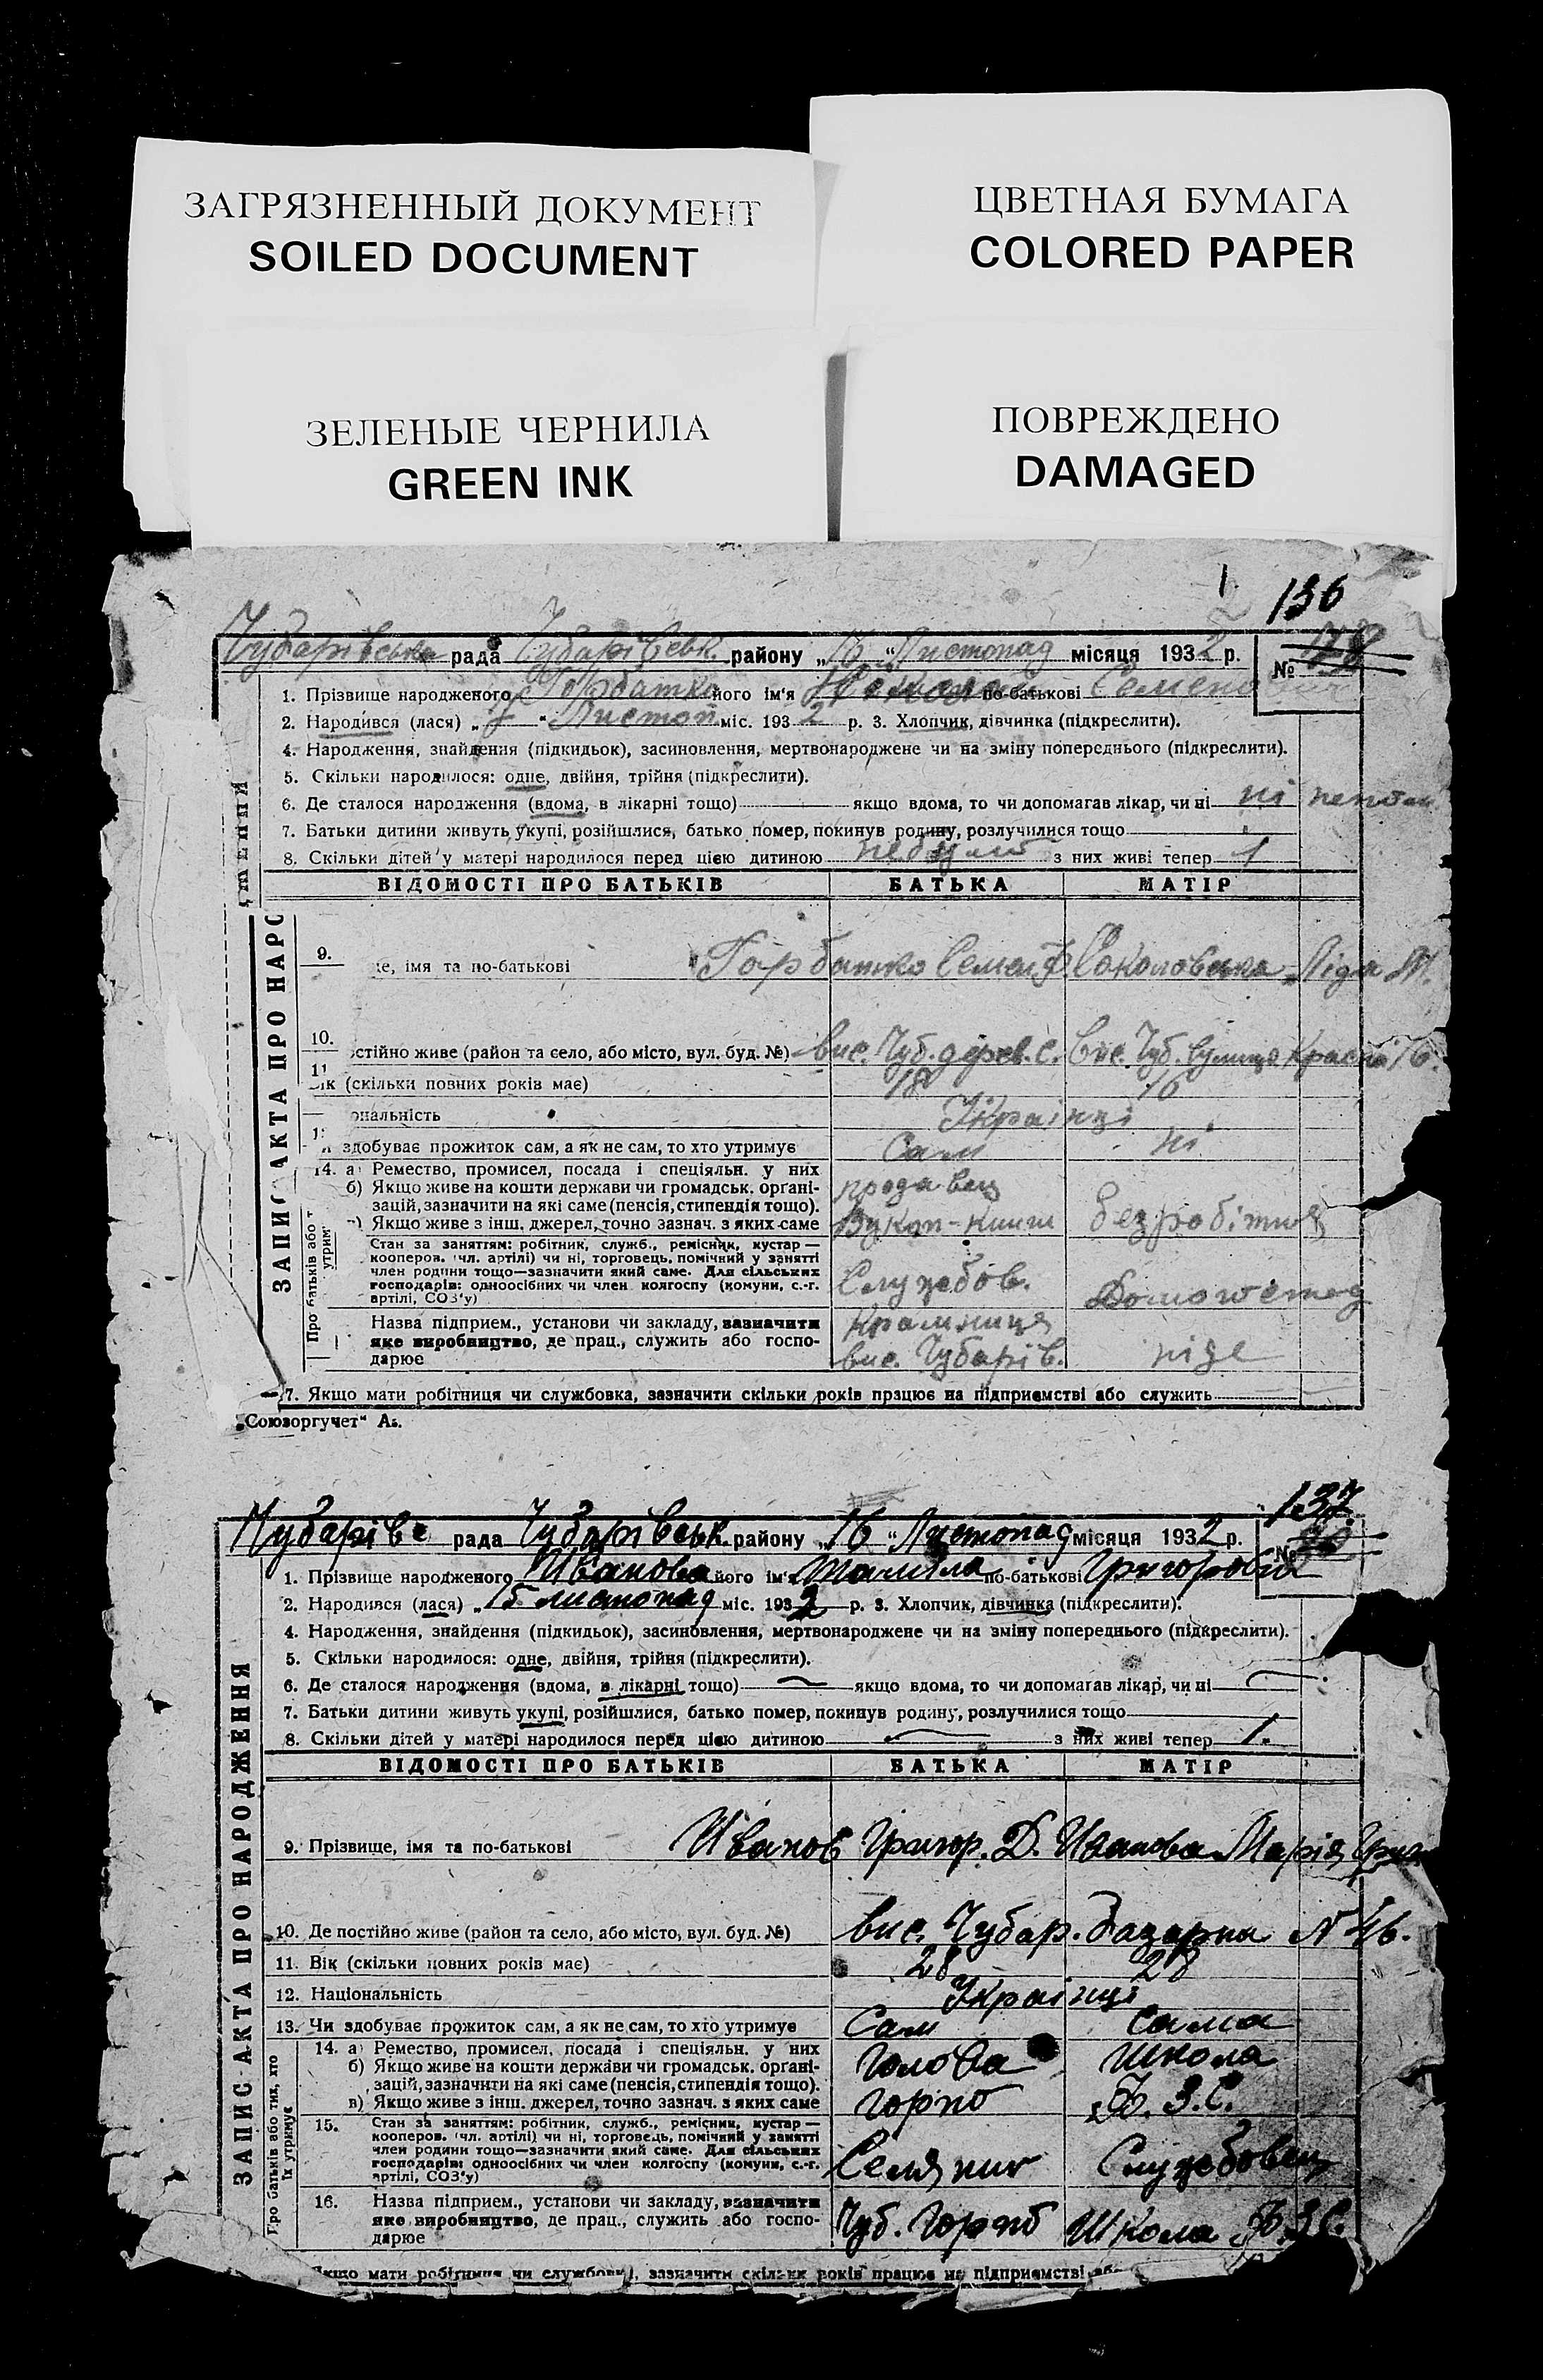 ЗАГРЯЗНЕННЫЙ ДОКУМЕНТ
SOILED DOCUMENT
ЦВЕТНАЯ БУМАГА
COLORED PAPER
ЗЕЛЕНЫЕ ЧЕРНИЛА
GREEN INK
ПОВРЕЖДЕНО
DAMAGED
1. 136
Чубарівська рада Чубарівськ. району „16“ Листопад місяця 1932 р. №
1. Прізвище народженого Горбатко його ім'я по-батькові Семенович
2. Народився (лася) „7“ Листоп міс. 1932 р. 3. Хлопчик, дівчинка (підкреслити).
4. Народження, знайдення (підкидьок), засиновлення, мертвонароджене чи на зміну попереднього (підкреслити).
5. Скільки народилося: одне, двійня, трійня (підкреслити).
6. Де сталося народження (вдома, в лікарні тощо) якщо вдома, то чи допомагав лікар, чи ні ні
7. Батьки дитини живуть укупі, розійшлися, батько помер, покинув родину, розлучилися тощо
8. Скільки дітей у матері народилося перед цією дитиною з них живі тепер 1
ВІДОМОСТІ ПРО БАТЬКІВ БАТЬКА МАТІР
ЗАПИ АКТА ПРО НАРО
9. це, імя та по-батькові Горбатко Семен Ф. Соколовська Ліда М.
10. остійно живе (район та село, або місто, вул. буд. №) вис. Чуб. дерев. с. вис. Чуб. вулиця Красна 16.
11 ік (скільки повних років має) 18 16
ональність Українці
здобуває прожиток сам, а як не сам, то хто утримує Сам ні
14. а) Ремество, промисел, посада і спеціяльн. у них продавец
б) Якщо живе на кошти держави чи громадськ. орґані-
зацій, зазначити на які саме (пенсія, стипендія тощо).
) Якщо живе з інш. джерел, точно зазнач. з яких саме Вукоп-книги безробітня
Про батьків або т
утрим
Стан за заняттям: робітник, служб., ремісник, кустар —
кооперов. чл. артілі) чи ні, торговець, помічний у занятті
член родини тощо—зазначити який саме. Для сільських
господарів: одноосібних чи член колгоспу (комуни, с.-г.
артілі, СОЗ'у) Службов.
Назва підприєм., установи чи закладу, зазначити Крамниця
яке виробництво, де прац., служить або госпо-
дарює вис. Чубарів. ніде
7. Якщо мати робітниця чи службовка, зазначити скільки років працює на підприємстві або служить
„Союзоргучет“ Аз.
137
Чубарівс рада Чубарівськ. району „16“ Листопад місяця 1932 р. №
1. Прізвище народженого Иванова його ім'я Тамила по-батькові Григоровна
2. Народився (лася) „15 листопад міс. 1932 р. 3. Хлопчик, дівчинка (підкреслити).
4. Народження, знайдення (підкидьок), засиновлення, мертвонароджене чи на зміну попереднього (підкреслити).
5. Скільки народилося: одне, двійня, трійня (підкреслити).
6. Де сталося народження (вдома, в лікарні тощо) якщо вдома, то чи допомагав лікар, чи ні
7. Батьки дитини живуть укупі, розійшлися, батько помер, покинув родину, розлучилися тощо
8. Скільки дітей у матері народилося перед цією дитиною з них живі тепер 1.
ВІДОМОСТІ ПРО БАТЬКІВ БАТЬКА МАТІР
ЗАПИС АКТА ПРО НАРОДЖЕННЯ
9. Прізвище, імя та по-батькові Иванов Григор. Д. Иванова Марія Григ
10. Де постійно живе (район та село, або місто, вул. буд. №) вис. Чубар. базарна № 46.
11. Вік (скільки повних років має) 28 28
12. Національність Українці
13. Чи здобуває прожиток сам, а як не сам, то хто утримує Сам Сама
14. а) Ремество, промисел, посада і спеціяльн. у них Голова школа
б) Якщо живе на кошти держави чи громадськ. орґані-
зацій, зазначити на які саме (пенсія, стипендія тощо).
в) Якщо живе з інш. джерел, точно зазнач. з яких саме горпо З.С.
Про батьків або тих, хто
їх утримує
15. Стан за заняттям: робітник, служб., ремісник, кустар —
кооперов. чл. артілі) чи ні, торговець, помічний у занятті
член родини тощо—зазначити який саме. Для сільських
господарів: одноосібних чи член колгоспу (комуни, с.-г.
артілі, СОЗ'у) Селяник Службовец
16. Назва підприєм., установи чи закладу, зазначити
яке виробництво, де прац., служить або госпо- Чуб. Горпо Школа
дарює
Якщо мати робітниця чи службовка, зазначити скільки років працює на підприємстві або